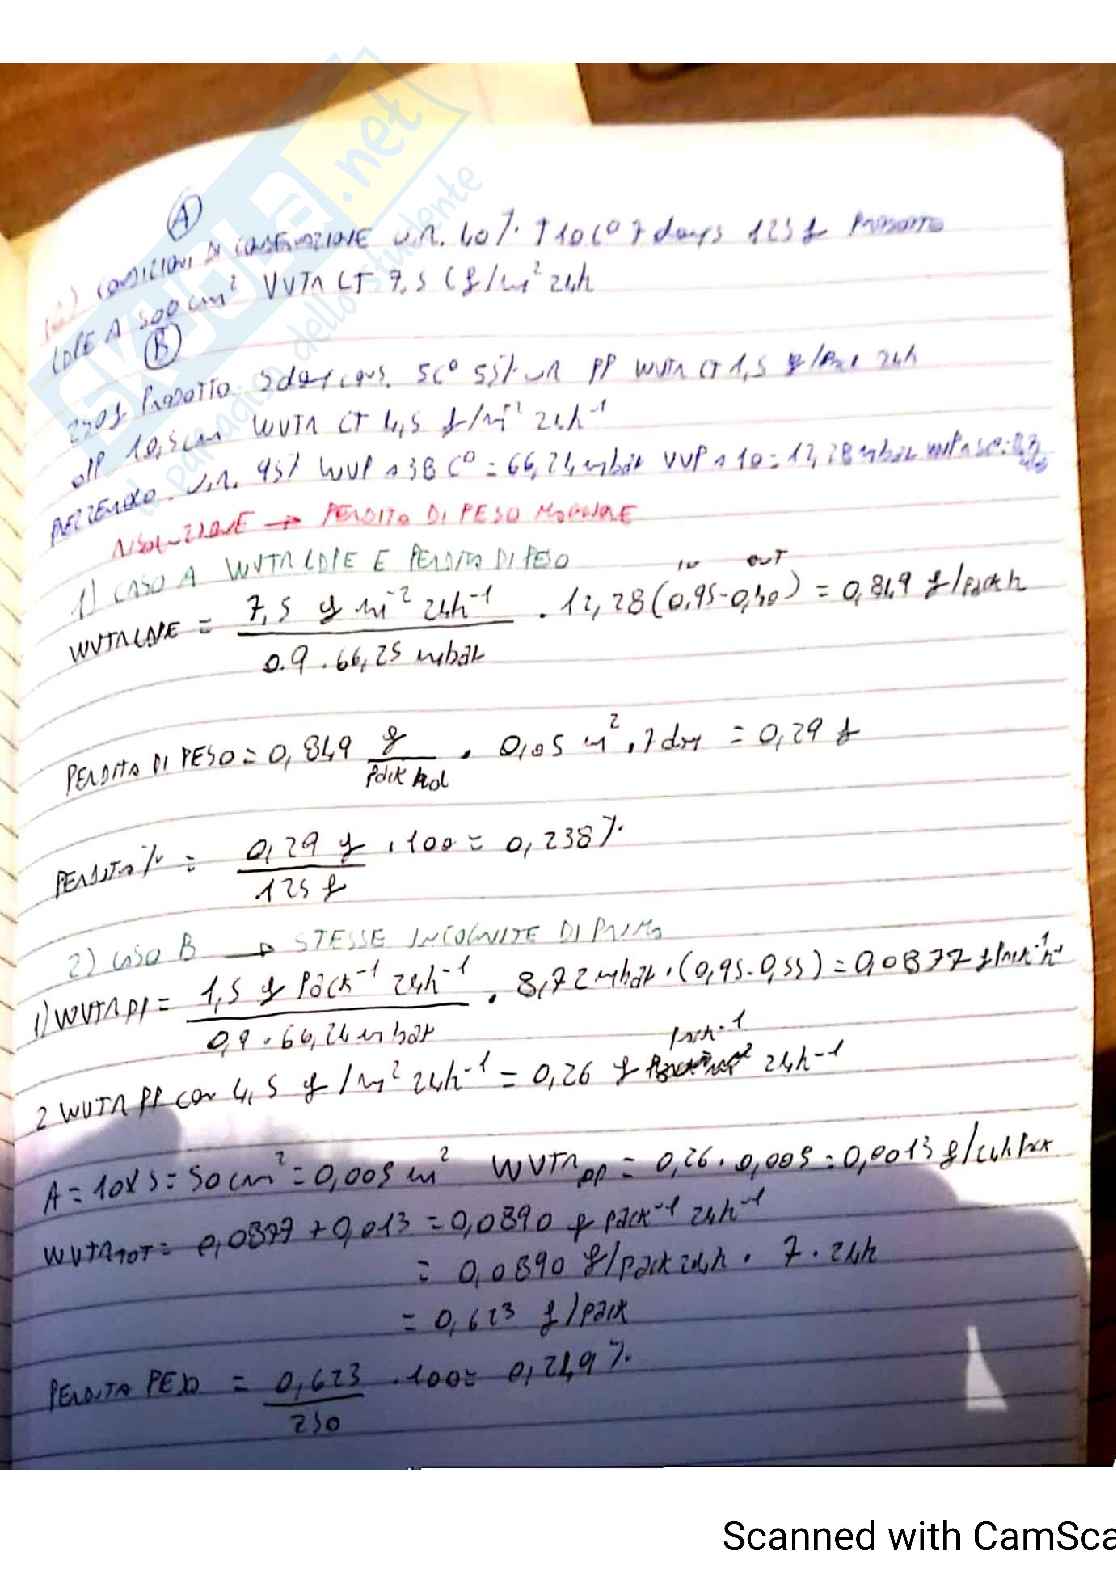 A
CONDIZIONI DI CONSERVAZIONE U.R. 40% T 10 C° 7 days 125 g PRODOTTO
LDPE A 500 cm² WVTR CT 7,5 (g/m² 24h
B
PRODOTTO 5C° 55% UR PP WVTR CT 1,5 24h
10,5 cm WVTR CT 4,5 g/m² 24h⁻¹
U.R. 95% WVP a 38 C° = 66,24 mbar VVP a 10 = 12,28 mbar
RISOLUZIONE → PERDITA DI PESO MAGGIORE
1) CASO A WVTR LDPE E PERDITA DI PESO
in out
WVTR LDPE = 7,5 g m⁻² 24h⁻¹ / 0.9 . 66,25 mbar . 12,28 (0,95-0,40) = 0,849 g/pack h
PERDITA DI PESO = 0,849 g / pack . 0,05 m² . 7 day = 0,29 g
PERDITA % = 0,29 g / 125 g . 100 = 0,238 %
2) CASO B → STESSE INCOGNITE DI PRIMA
1) WVTR PP = 1,5 g Pack⁻¹ 24h⁻¹ / 0,9 . 66,24 mbar . 8,72 mbar . (0,95-0,55) = 0,0877 g pack⁻¹ h⁻¹
2 WVTR PP con 4,5 g/m² 24h⁻¹ = 0,26 g pack⁻¹ 24h⁻¹
A = 10x5 = 50 cm² = 0,005 m² WVTR PP = 0,26 . 0,005 = 0,0013 g/24h pack
WVTR TOT = 0,0877 + 0,013 = 0,0890 g pack⁻¹ 24h⁻¹
= 0,0890 g/pack 24h . 7 . 24h
= 0,623 g/pack
PERDITA PESO = 0,623 / 250 . 100 = 0,249 %
SKUOLA.net
il paradiso dello studente
Scanned with CamSca